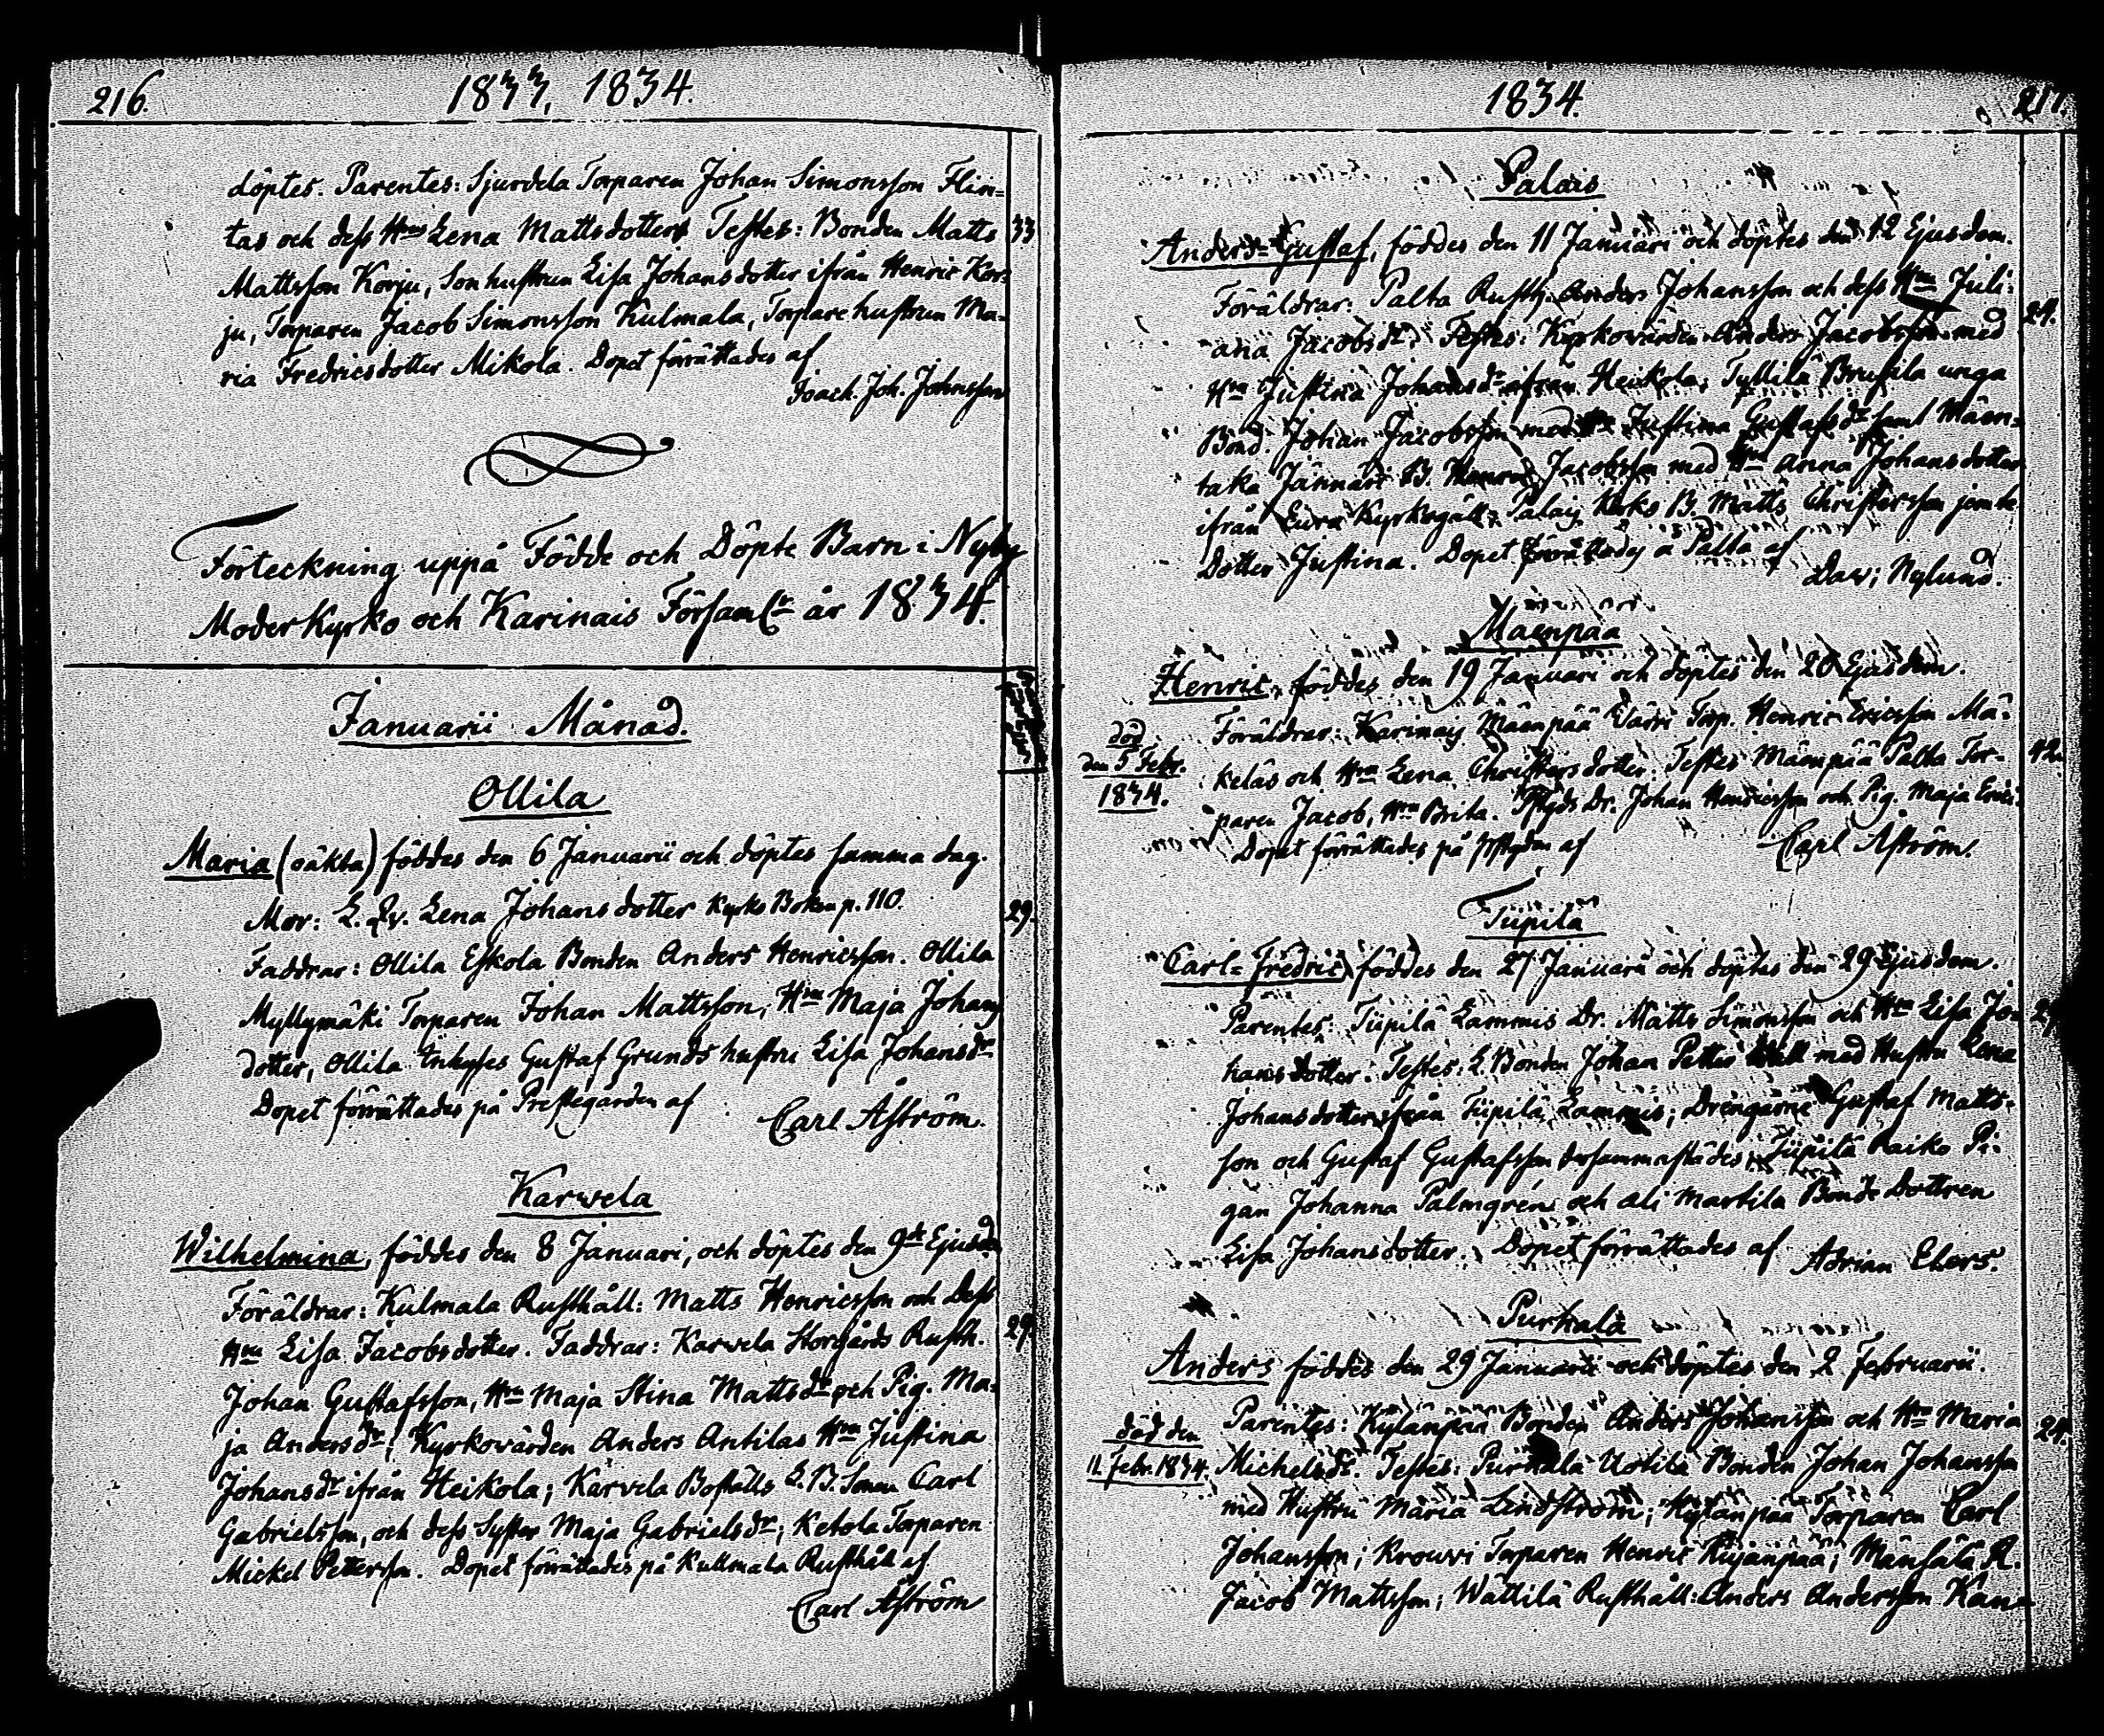 216.
1833, 1834.
döptes. Parentes: Sjurdela Torparen Johan Simonsson Flin-
tas och dess Hru Lena Mattsdotter Testes: Bonden Matts
33
Mattsson Korju, Sonhustrun Lisa Johansdotter ifrån Henric Kor-
ju, Torparen Jacob Simonsson Kulmala, Torparehustrun Ma-
ria Fredricsdotter Mikola. Dopet förrättades af
Joach. Joh. Johnsson
Förteckning uppå Födde och Döpte Barn i Nyby
Moder Kyrko och Karinais Församlr år 1834.
Januarii Månad.
Ollila
Maria (oäkta) föddes den 6 Januarii och döptes samma dag.
Mor: L. Qv. Lena Johansdotter Kyrko Boken p. 110.
29.
Faddrar: Ollila Eskola Bonden Anders Henricsson. Ollila
Myllymäki Torparen Johan Mattsson, Hru Maja Johans
dotter, Ollila Inhyses Gustaf Grunds hustru Lisa Johansdr
Dopet förrättades på Prestegården af
Carl Åström.
Karwela
Wilhelmina, föddes den 8 Januari, och döptes den 9de Ejusd
Föräldrar: Kulmala Rusthåll: Matts Henricsson och Dess
Hru Lisa Jacobsdotter. Faddrar: Karwela Storgårds Rusth.
29.
Johan Gustafsson, Hru Maja Stina Mattsdr och Pig. Ma-
ja Andersdr; Kyrkovärden Anders Antilas Hru Justina
Johansdr ifrån Heikola; Karvela Boställs L. B. Sonen Carl
Gabrielsson, och dess Syster Maja Gabrielsdr; Ketola Torparen
Mickel Pettersson. Dopet förrättades på Kullmala Rusthåll af
Carl Åström
1834.
217.
Palais
Anders-Gustaf, föddes den 11 Januari och döptes den 12 Ejusdem.
Föräldrar: Palta Rusth. Anders Johansson och dess Hru Juli-
24.
ana Jacobsdr. Testes: Kyrkovärden Anders Jacobsson med
Hru Justina Johansdr ifrån Heikola; Tyllilä Brusila unga
Bond. Johan Jacobsson med Justina Gustafsdr samt Mäen-
taka Jännäri B. Jacobsson med Hru Anna Johansdotter
ifrån Eura Kyrkogäll; Palais B. Matts Christersson jemte
Dotter Justina. Dopet förrättades å Palta af
Dav; Nylund.
Mäenpää
Henric, föddes den 19 Januari och döptes den 20 Ejusdem.
död
den 5 Febr.
1834.
Föräldrar: Karinais Mäenpää Torp. Henric Ericsson Mä-
keläs och Hru Lena Christersdotter. Testes Mäenpää Palta Tor-
42.
paren Jacob, Hru Brita. Dr. Johan Henricsson och Pig. Maja
Dopet förrättades på af
Carl Åström.
Tiipilä
Carl-Fredric, föddes den 27 Januarii och döptes den 29 Ejusdem.
Parentes: Tiipilä Lammis Dr. Matts Simonsson och Hru Lisa Jo-
hansdotter. Testes: L. Bonden Johan Petter med Hustru Lena
Johansdotter från Tiipilä Lammis; Drengarne Gustaf Matts-
son och Gustaf Gustafsson dersammastädes; Tiipilä Raiko Pi-
gan Johanna Palmgren och Ali Martila Bonde Dottren
Lisa Johansdotter. Dopet förrättades af
Adrian Ehers.
Purhala
Anders föddes den 29 Januarii och döptes den 2 Februarii.
död den
11. Febr. 1834.
Parentes: Kylänpää Bonden Anders Johansson och Hru Maria
24.
Michelsdr. Testes: Purhala Uotila Bonden Johan Johansson
med Hustru Maria Lindström; Kylänpää Torparen Carl
Johansson; Krouvi Torparen Henric Kujanpää; Mänsälä R.
Jacob Mattsson; Wättilä Rusthåll: Anders Andersson Kan-